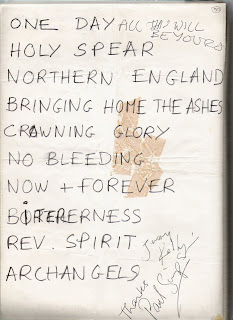 ONE DAY ALL THIS WILL
BE YOURS
HOLY SPEAR
NORTHERN ENGLAND
BRINGING HOME THE ASHES
CROWNING GLORY
NO BLEEDING
NOW + FOREVER
BITTERNESS
REV. SPIRIT
ARCHANGELS
Thanks
Paul